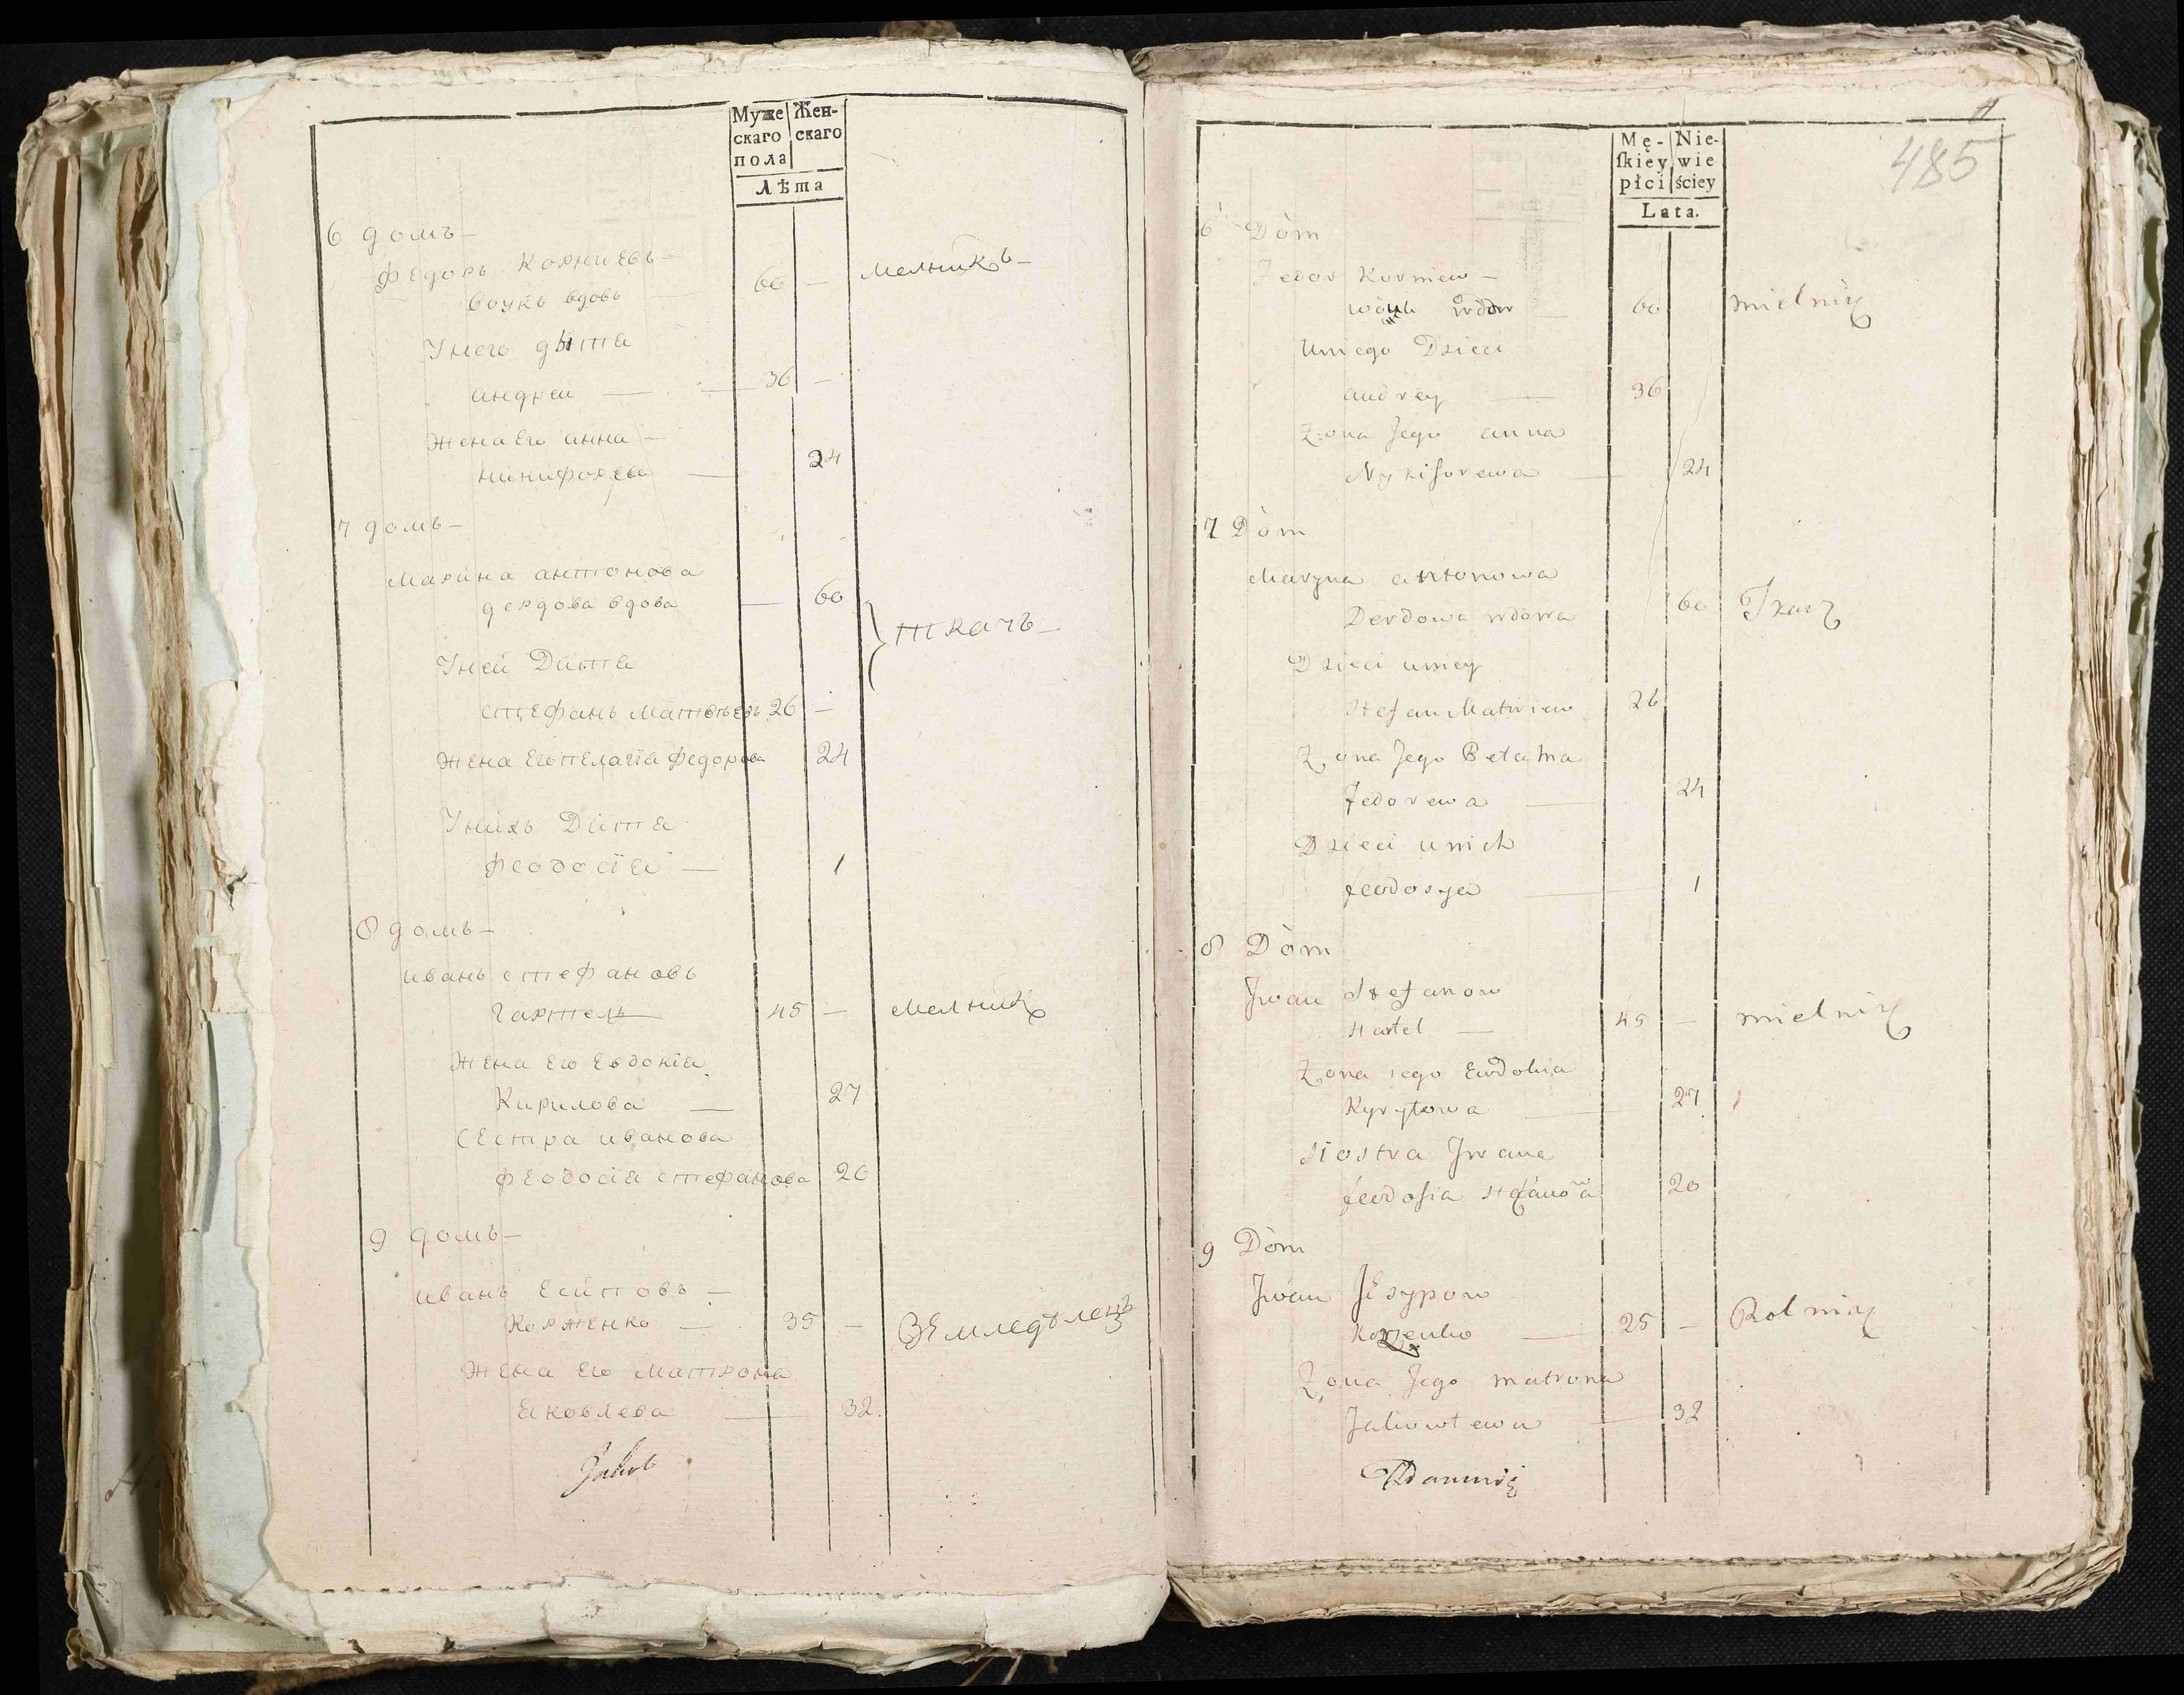 Муже Жен-
скаго скаго
пола
Лѣта
6 домъ —
Федоръ Корниевъ —
воукъ вдовъ 60 — мелникъ —
Унего дѣти
андреи — 36 —
Жена Его анна —
никифорева — 24
7 домъ —
Марина антонова
дердова вдова — 60
ткачъ —
Уней Дити
стефанъ Матвѣевъ 26 —
Жена Его пелагїа федорова 24
Унихъ Дити
феодосїа — 1
8 домъ —
иванъ стефановъ
гартель 45 — мелникъ
Жена Его Евдокїа
Кирилова — 27
сестра иванова
феодосїа стефанова 20
9 домъ —
иванъ Есиповъ —
Корженко — 35 — Землѣделецъ
Жена Его Матрона
Яковлева — 32.
Jakob
485
Mę- Nie-
ſkiey wie
płci ściey
Lata.
6 Dòm
Fedor Korniew —
wouk wdow — 60 mielnik
Uniego Dzieci
andrey — 36
Zona Jego anna
Nykiforewa — 24
7 Dòm
Maryna antonowa
Derdowa wdowa 60 Tkacz
Dzieci uniey
Stefan Matwiew 26
Zona Jego Pelahia
fedorewa — 24
Dzieci unich
feodosya — 1
8 Dòm
Jwan Stefanow
Hartel — 45 — mielnik
Zona iego Ewdokia
Kyryłowa — 27
siostra Jwana
feodosia stefanowa 20
9 Dòm
Jwan Jesypow
Korzenko — 25 — Rolnik
Zona Jego matrona
Jakowlewa — 32